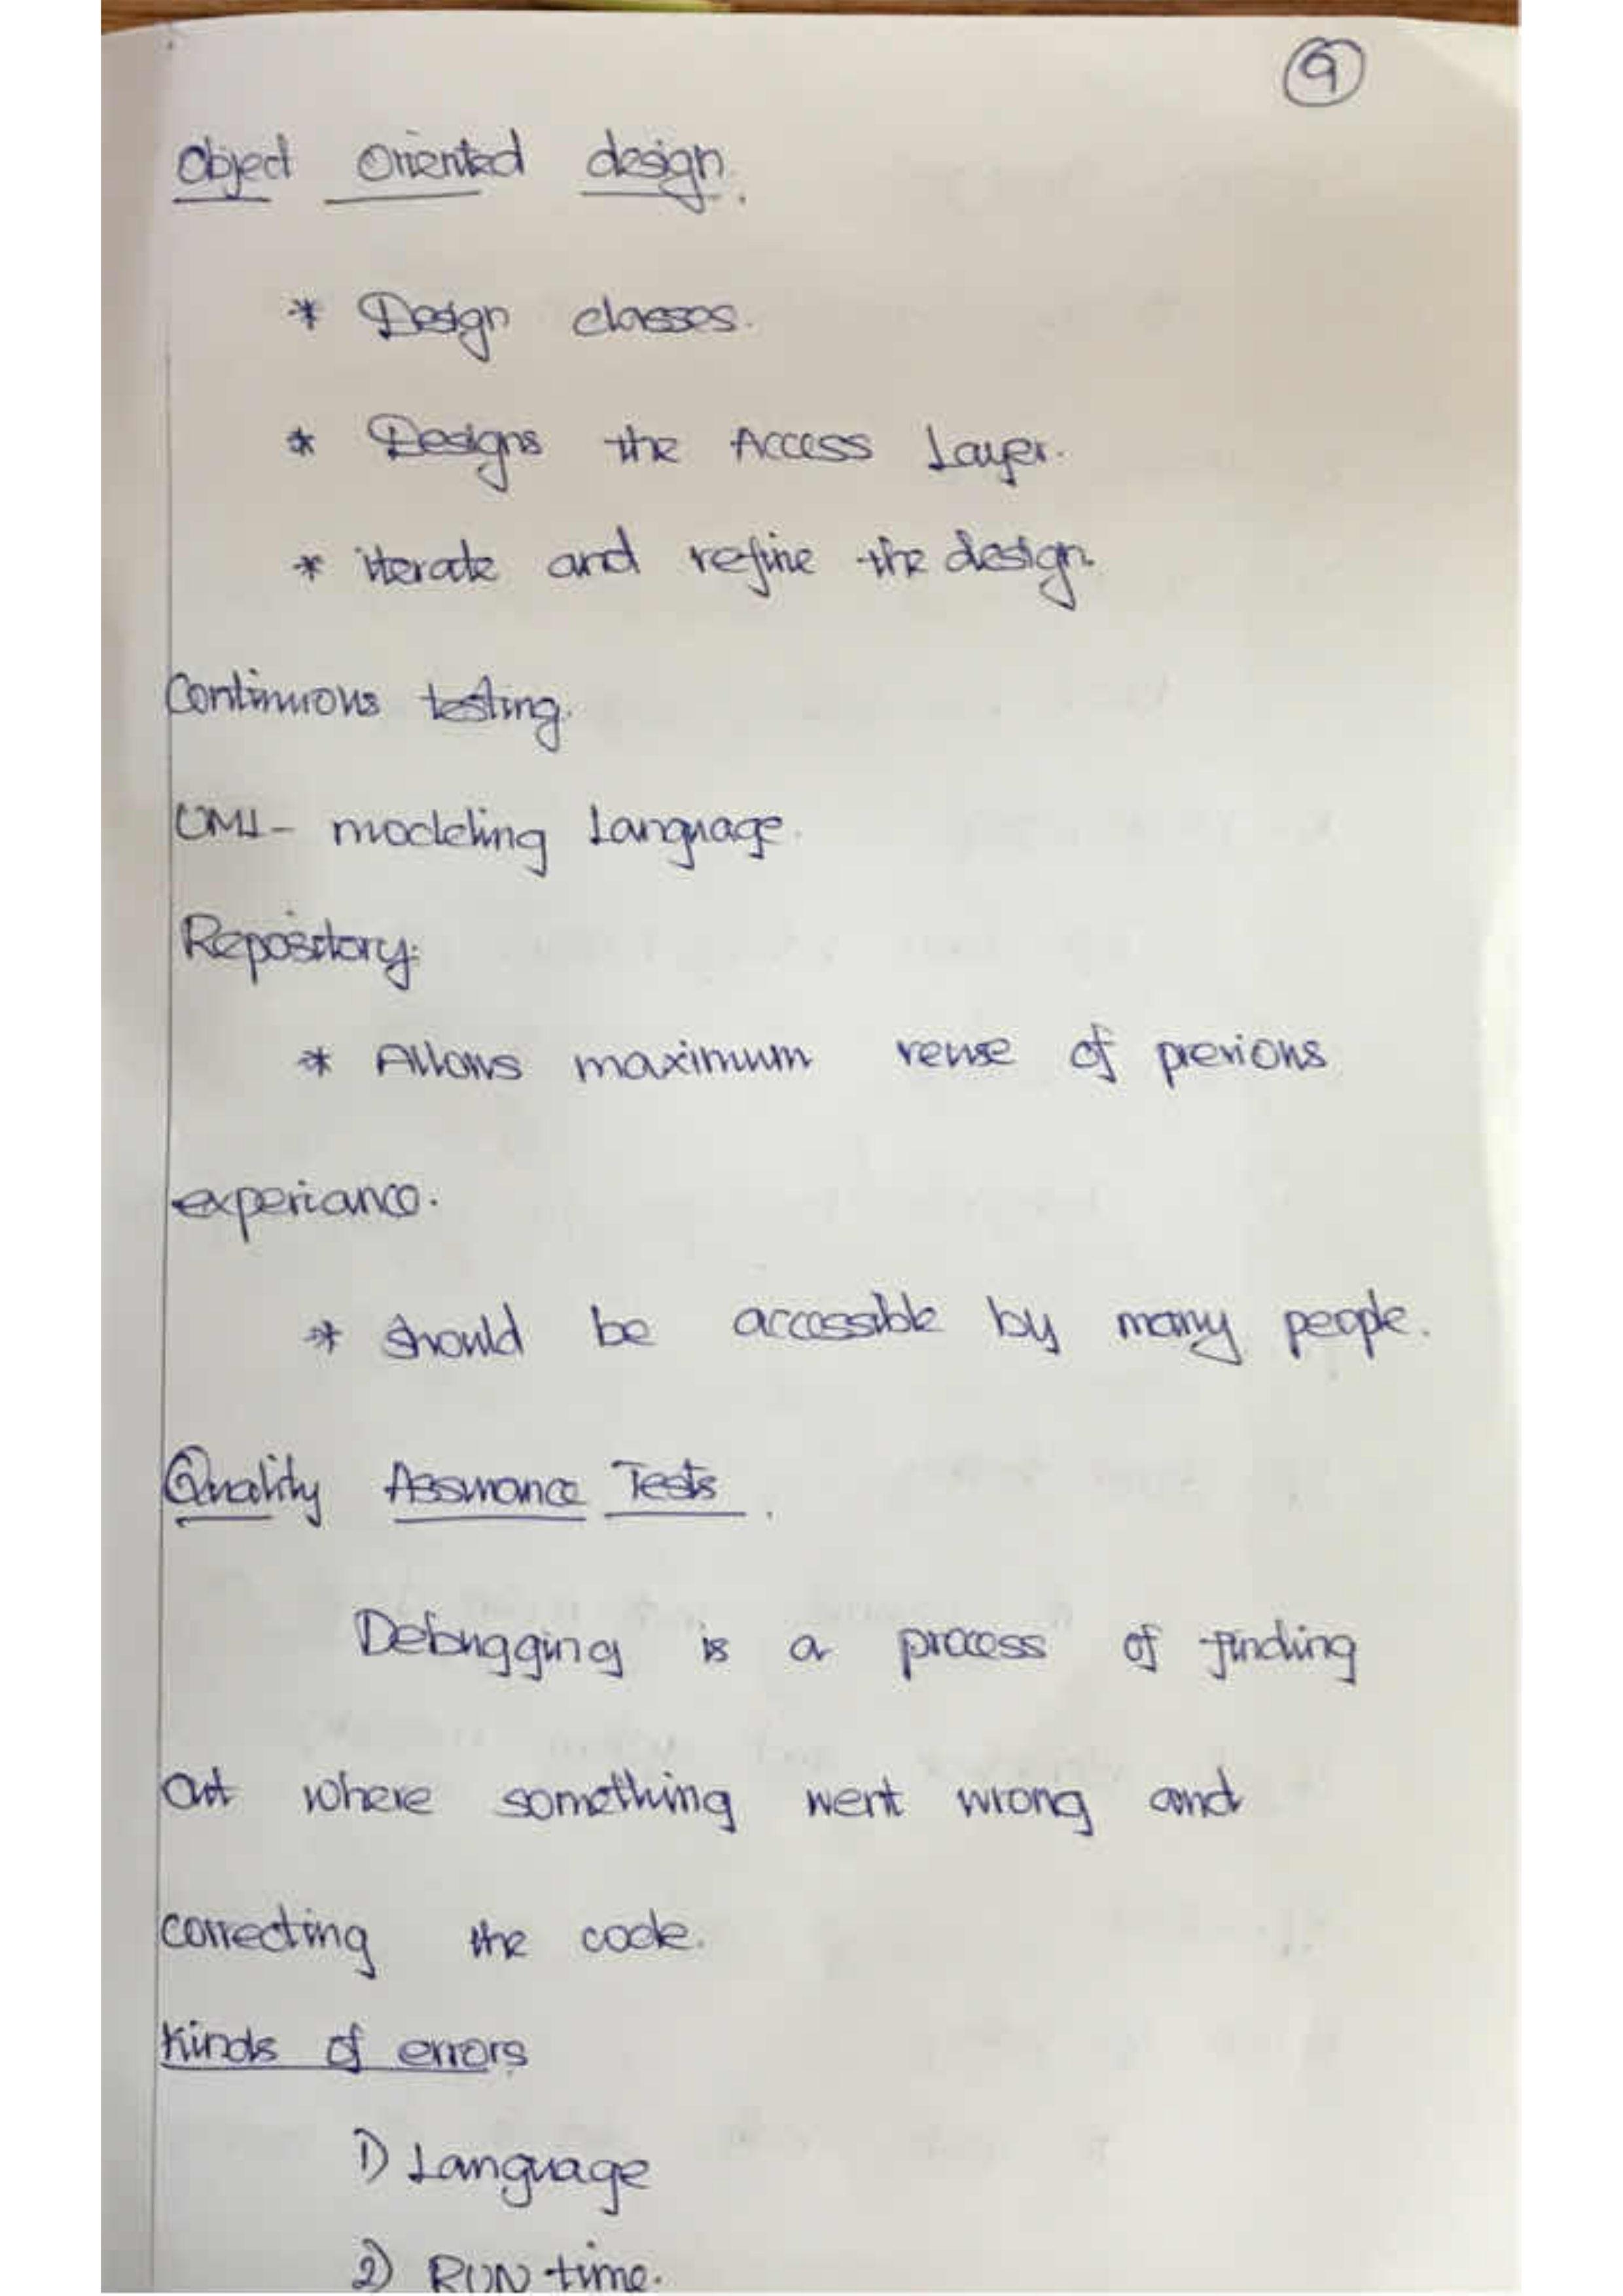 9
Object Oriented design.
* Design classes.
* Designs the Access Layer.
* iterate and refine the design.
Continuous testing.
UML - modeling Language.
Repository:
* Allows maximum reuse of previous
experiance.
* should be accessible by many people.
Quality Assurance Tests.
Debugging is a process of finding
out where something went wrong and
correcting the code.
Kinds of errors
1) Language
2) RUN time.